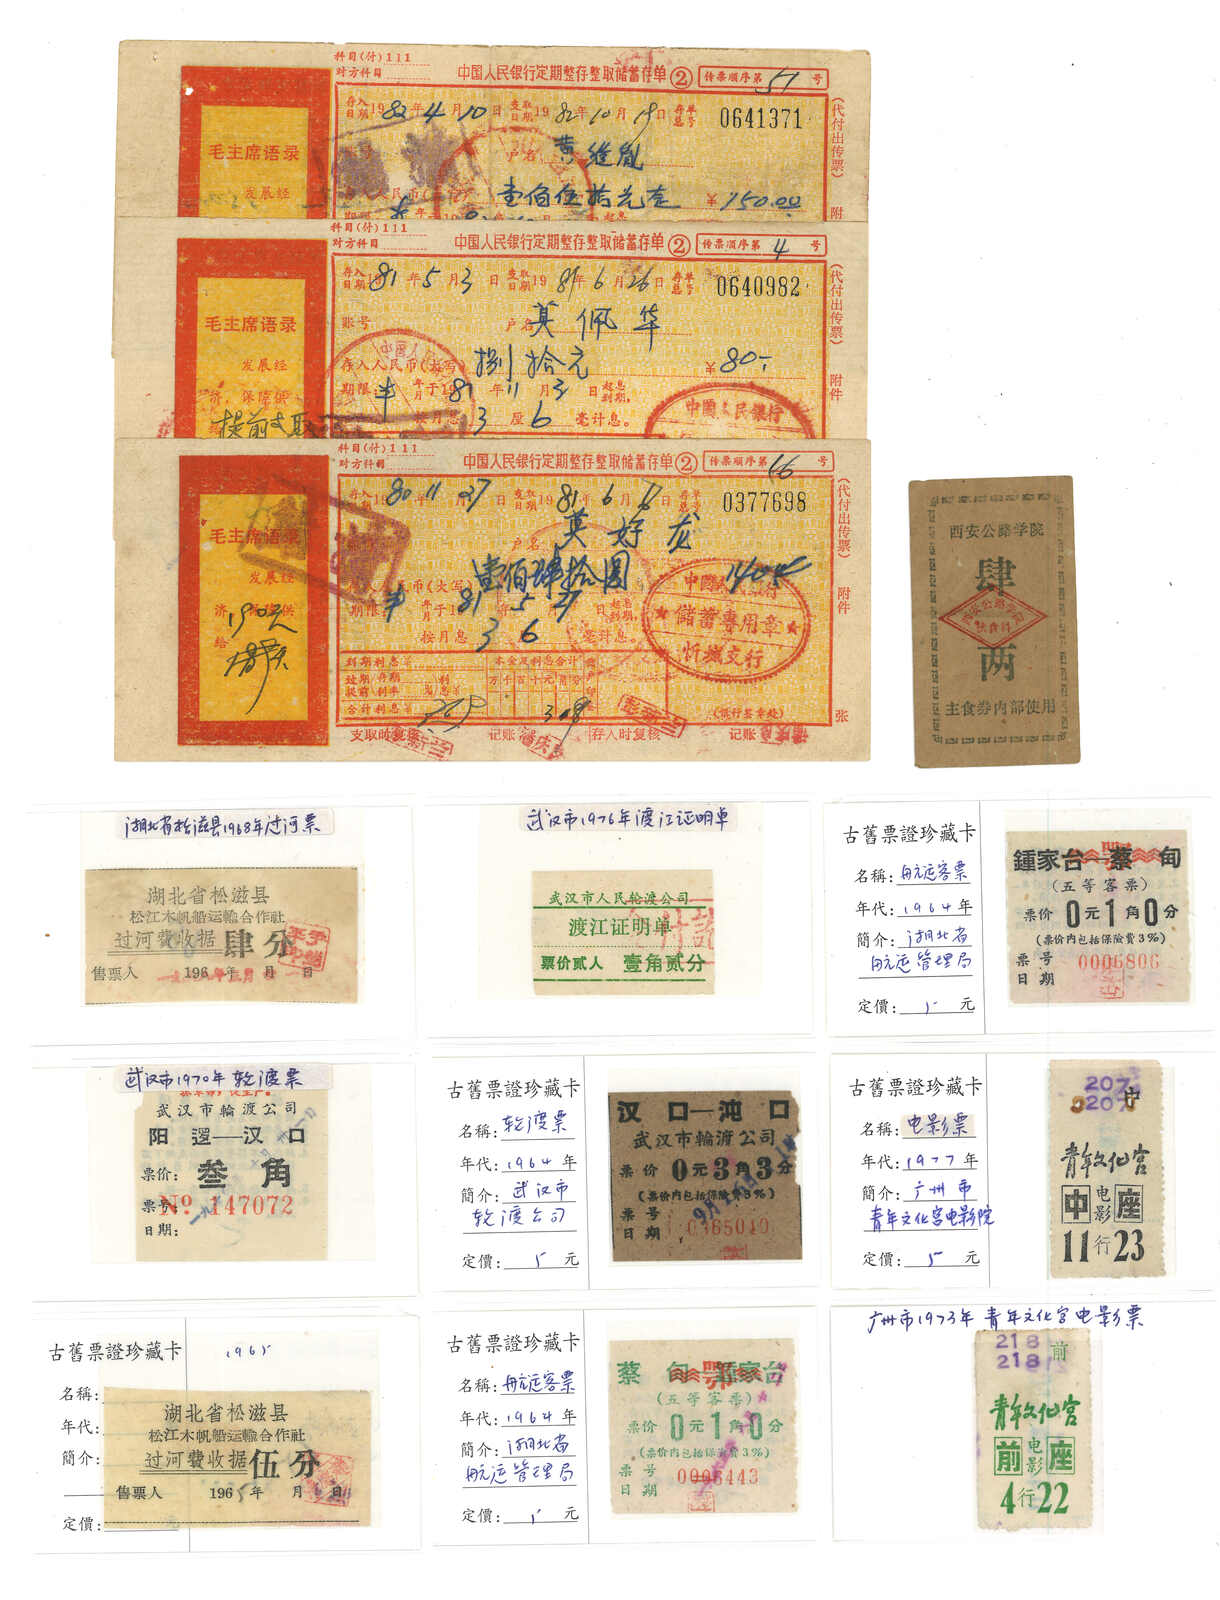 科目(付)111
对方科目
中国人民银行定期整存整取储蓄存单②
传票顺序第51号
存入日期1982年4月10日
支取日期1982年10月19日
存单总号
0641371
毛主席语录
户名
黄继胤
发展经
人民币
壹佰伍拾元
¥150.00
(代付出传票)
附
科目(付)111
对方科目
中国人民银行定期整存整取储蓄存单②
传票顺序第4号
存入日期1981年5月3日
支取日期1981年6月26日
存单总号
0640982
毛主席语录
账号
户名
莫佩华
发展经
存入人民币(大写)
捌拾元
¥80.-
济,保障供
给
提前支取
期限:半年于1981年11月3日起息到期。
按月息3厘6毫计息。
中国人民银行
(代付出传票)
附件
科目(付)111
对方科目
中国人民银行定期整存整取储蓄存单②
传票顺序第16号
存入日期1980年11月27日
支取日期1981年6月
存单总号
0377698
毛主席语录
户名
莫好龙
发展经
人民币(大写)
壹佰肆拾圆
期限:半年于1981年5月27日起息到期。
按月息3 6毫计息。
中国人民银行
储蓄专用章
忻城支行
到期利息
本金及利息合计
合计利息
(银行签章处)
支取时复核
记账
存入时复核
记账
(代付出传票)
附件
张
西安公路学院
肆
两
主食券内部使用
湖北省松滋县1968年过河票
湖北省松滋县
松江木帆船运输合作社
过河费收据 肆分
售票人 196 年 月 日
武汉市1976年渡江证明单
武汉市人民轮渡公司
渡江证明单
票价贰人 壹角贰分
古舊票證珍藏卡
名稱:航运客票
年代:1964年
簡介:湖北省
航运管理局
定價:5元
鍾家台—蔡甸
(五等客票)
票价0元1角0分
(票价内包括保險費3%)
票号 0006806
日期
武汉市1970年轮渡票
武汉市輪渡公司
阳逻—汉口
票价:叁角
票号:No 147072
日期:
古舊票證珍藏卡
名稱:轮渡票
年代:1964年
簡介:武汉市
轮渡公司
定價:5元
汉口—沌口
武汉市輪渡公司
票价0元3角3分
(票价内包括保險費3%)
票号 0365040
日期
古舊票證珍藏卡
名稱:电影票
年代:1977年
簡介:广州市
青年文化宫电影院
定價:5元
207
207
中
青年文化宫
中 电影 座
11行23
古舊票證珍藏卡
1965
名稱:
年代:
簡介:
定價: 元
湖北省松滋县
松江木帆船运輸合作社
过河费收据 伍分
售票人 1965年 月 日
古舊票證珍藏卡
名稱:航运客票
年代:1964年
簡介:湖北省
航运管理局
定價:5元
蔡甸—鍾家台
(五等客票)
票价0元1角0分
(票价内包括保險費3%)
票号 0006443
日期
广州市1973年青年文化宫电影票
218
218
前
青年文化宫
前 电影 座
4行22